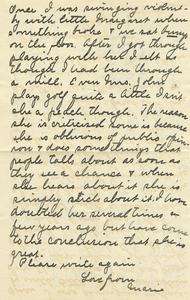 Once I was swinging violent-
ly with little Margaret when
something broke & we sat bump
on the floor. After I got through
playing with her I felt as
though I had been through
a mill. I own Mrs. John's
play golf quite a little. Isn't
she a peach though. The reason
she is criticized some is because
she is oblivious of public opin-
ion & does some things that
people talk about as soon as
they see a chance & when
she hears about it she is
simply
about it. I
doubted her several times a
few years ago but have come
to the conclusion that she is
great.
Please write again.
Love from
Marie